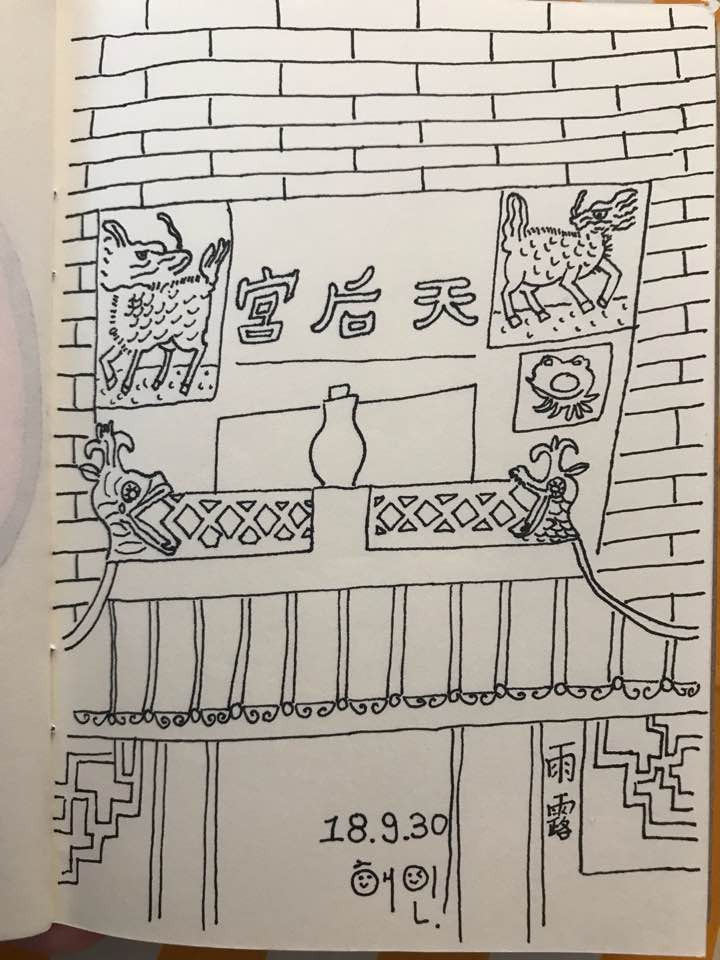 天后宮
雨露
18.9.30